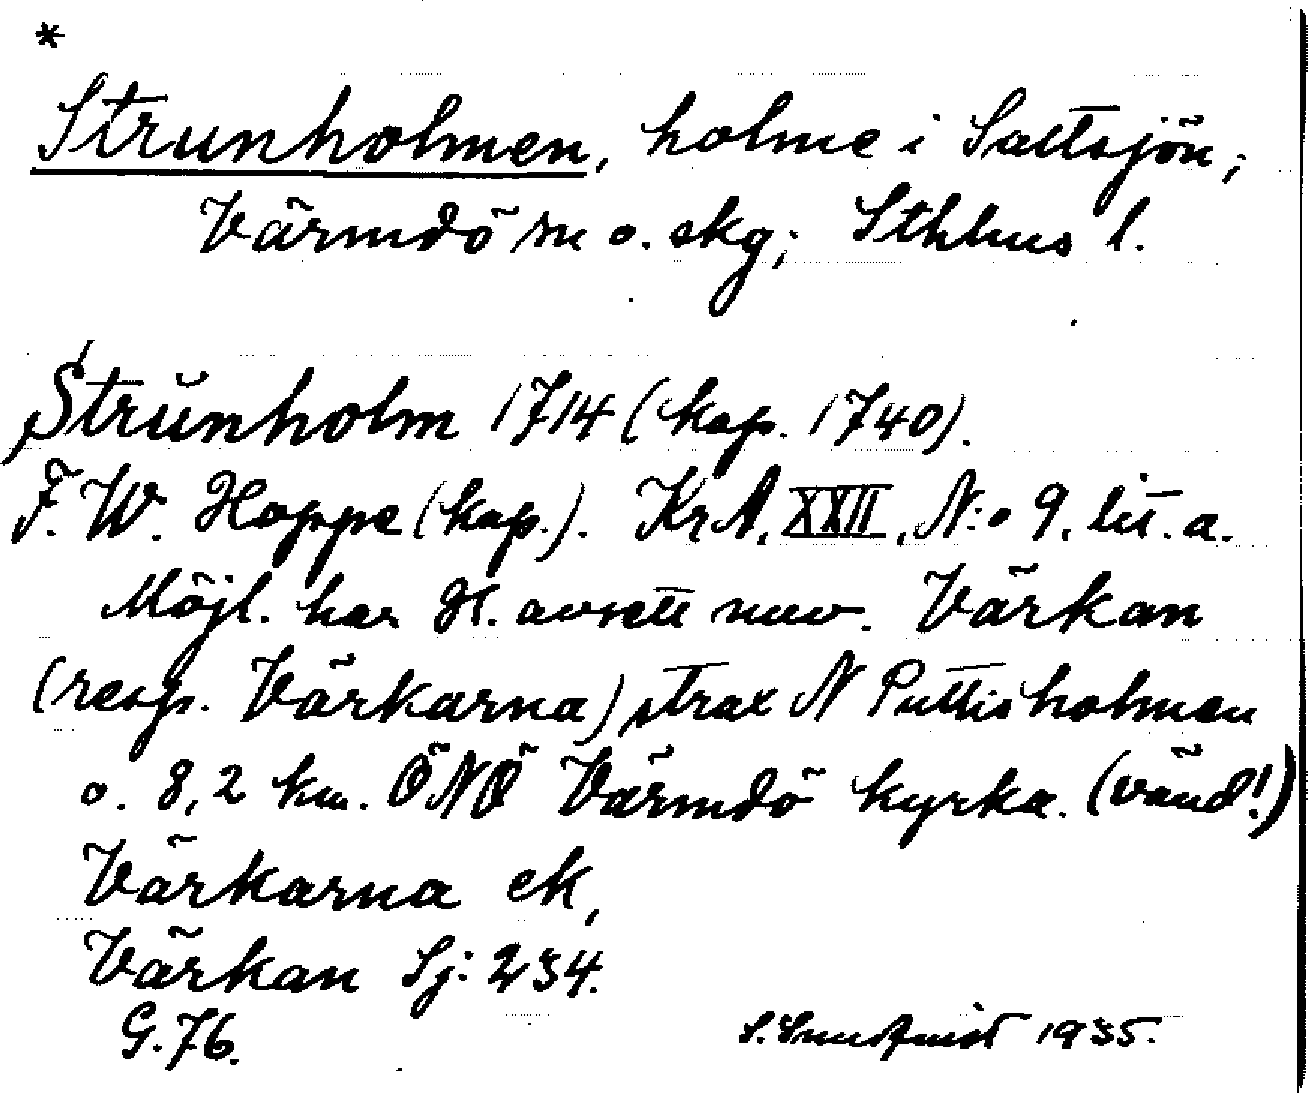 *
Strunholmen, holme i Saltsjön;
Värmdö sn o. skg; Sthlms l.
Strŭnholm 1714 (kop. 1740).
F. W. Hoppe (kop.). KrA. XXII, N:o 9. lit. a.
Möjl. har H. avsett nuv. Värkan
(resp. Värkarna) strax N Puttisholmen
o. 8,2 km. ÖNÖ Värmdö kyrka. (vänd!)
Värkarna ek,
Värkan Sj: 234.
G. 76. 1935.